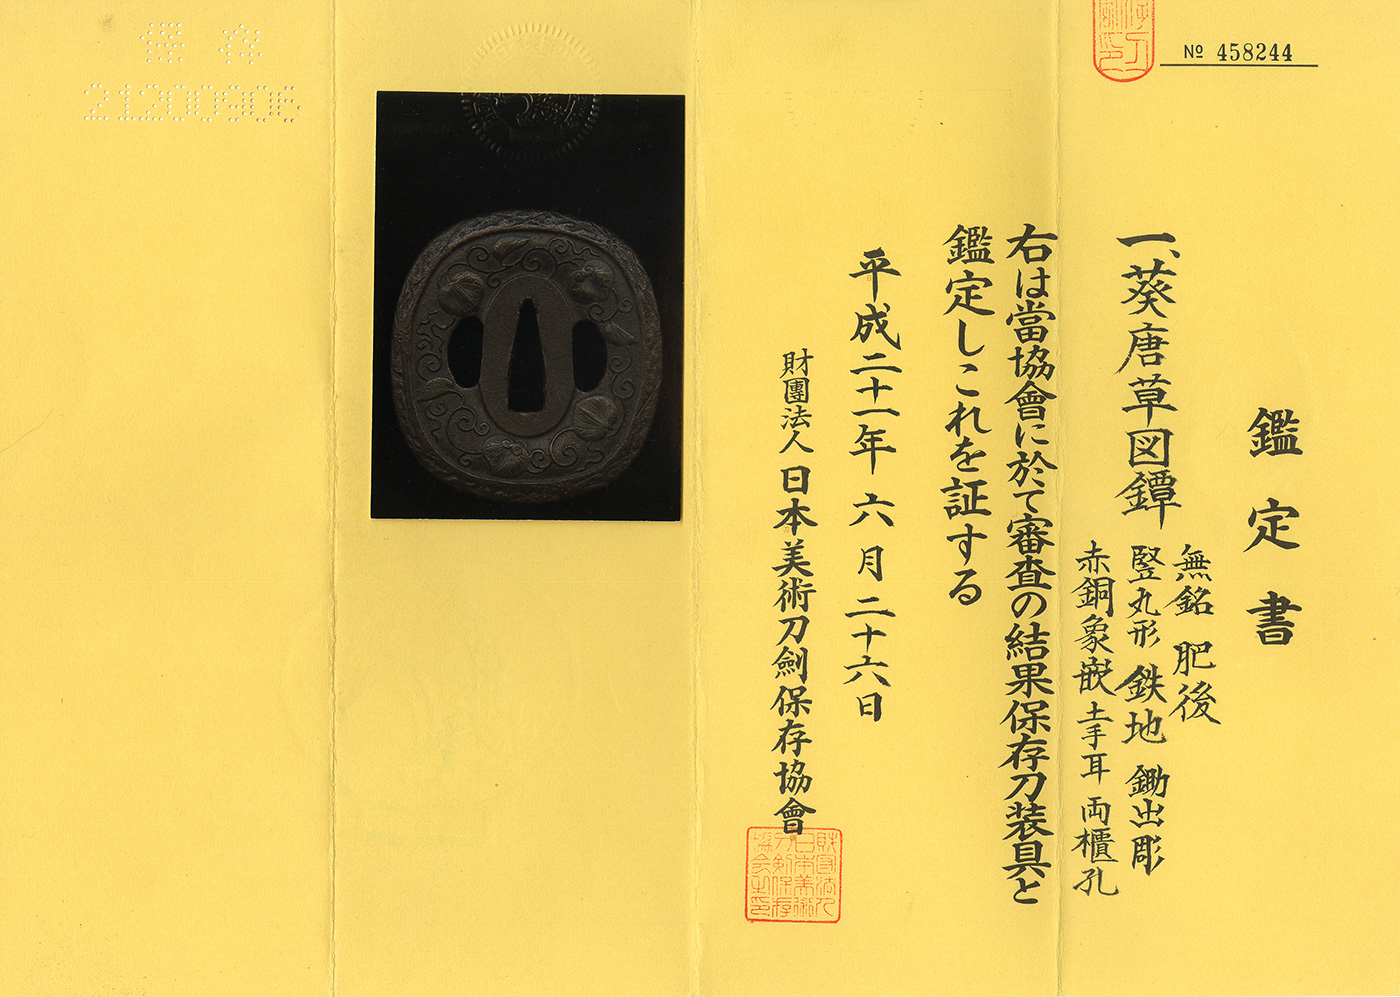 No 458244
鑑定書
一、葵唐草図鐔
無銘 肥後
竪丸形 鉄地 鋤出彫
赤銅象嵌 土手耳 両櫃孔
右は當協會に於て審査の結果保存刀装具と
鑑定しこれを証する
平成二十一年 六月二十六日
財團法人 日本美術刀劍保存協會
財団法人
日本美術
刀剣保存
協会之印
保存
21200906